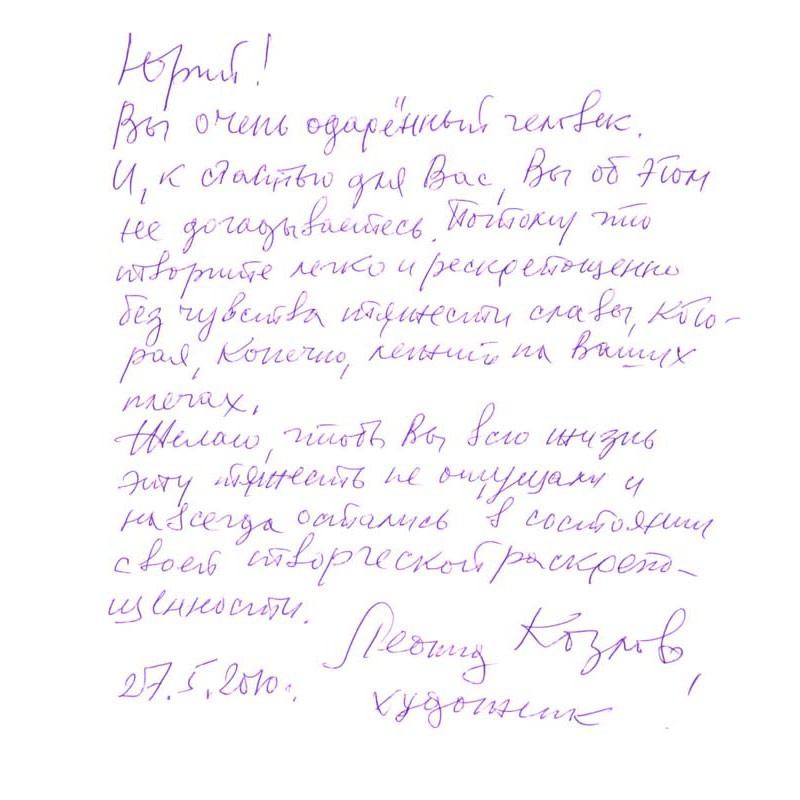 Юрий!
Вы очень одарённый человек.
И, к счастью для Вас, Вы об этом
не догадываетесь. Поэтому что
творите легко и раскрепощенно
без чувства тяжести славы, кото-
рая, конечно, лежит на Ваших
плечах.
Желаю, чтобы Вы всю жизнь
эту тяжесть не ощущали и
навсегда остались в состоянии
своей творческой раскрепо-
щенности.
Леонид Козлов,
27.5.2010г. художник